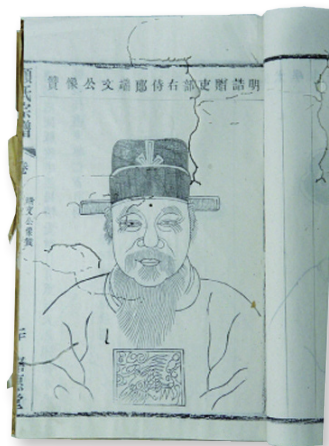 明誥贈吏部右侍郎端文公像贊
顧氏宗譜
卷
端文公像贊